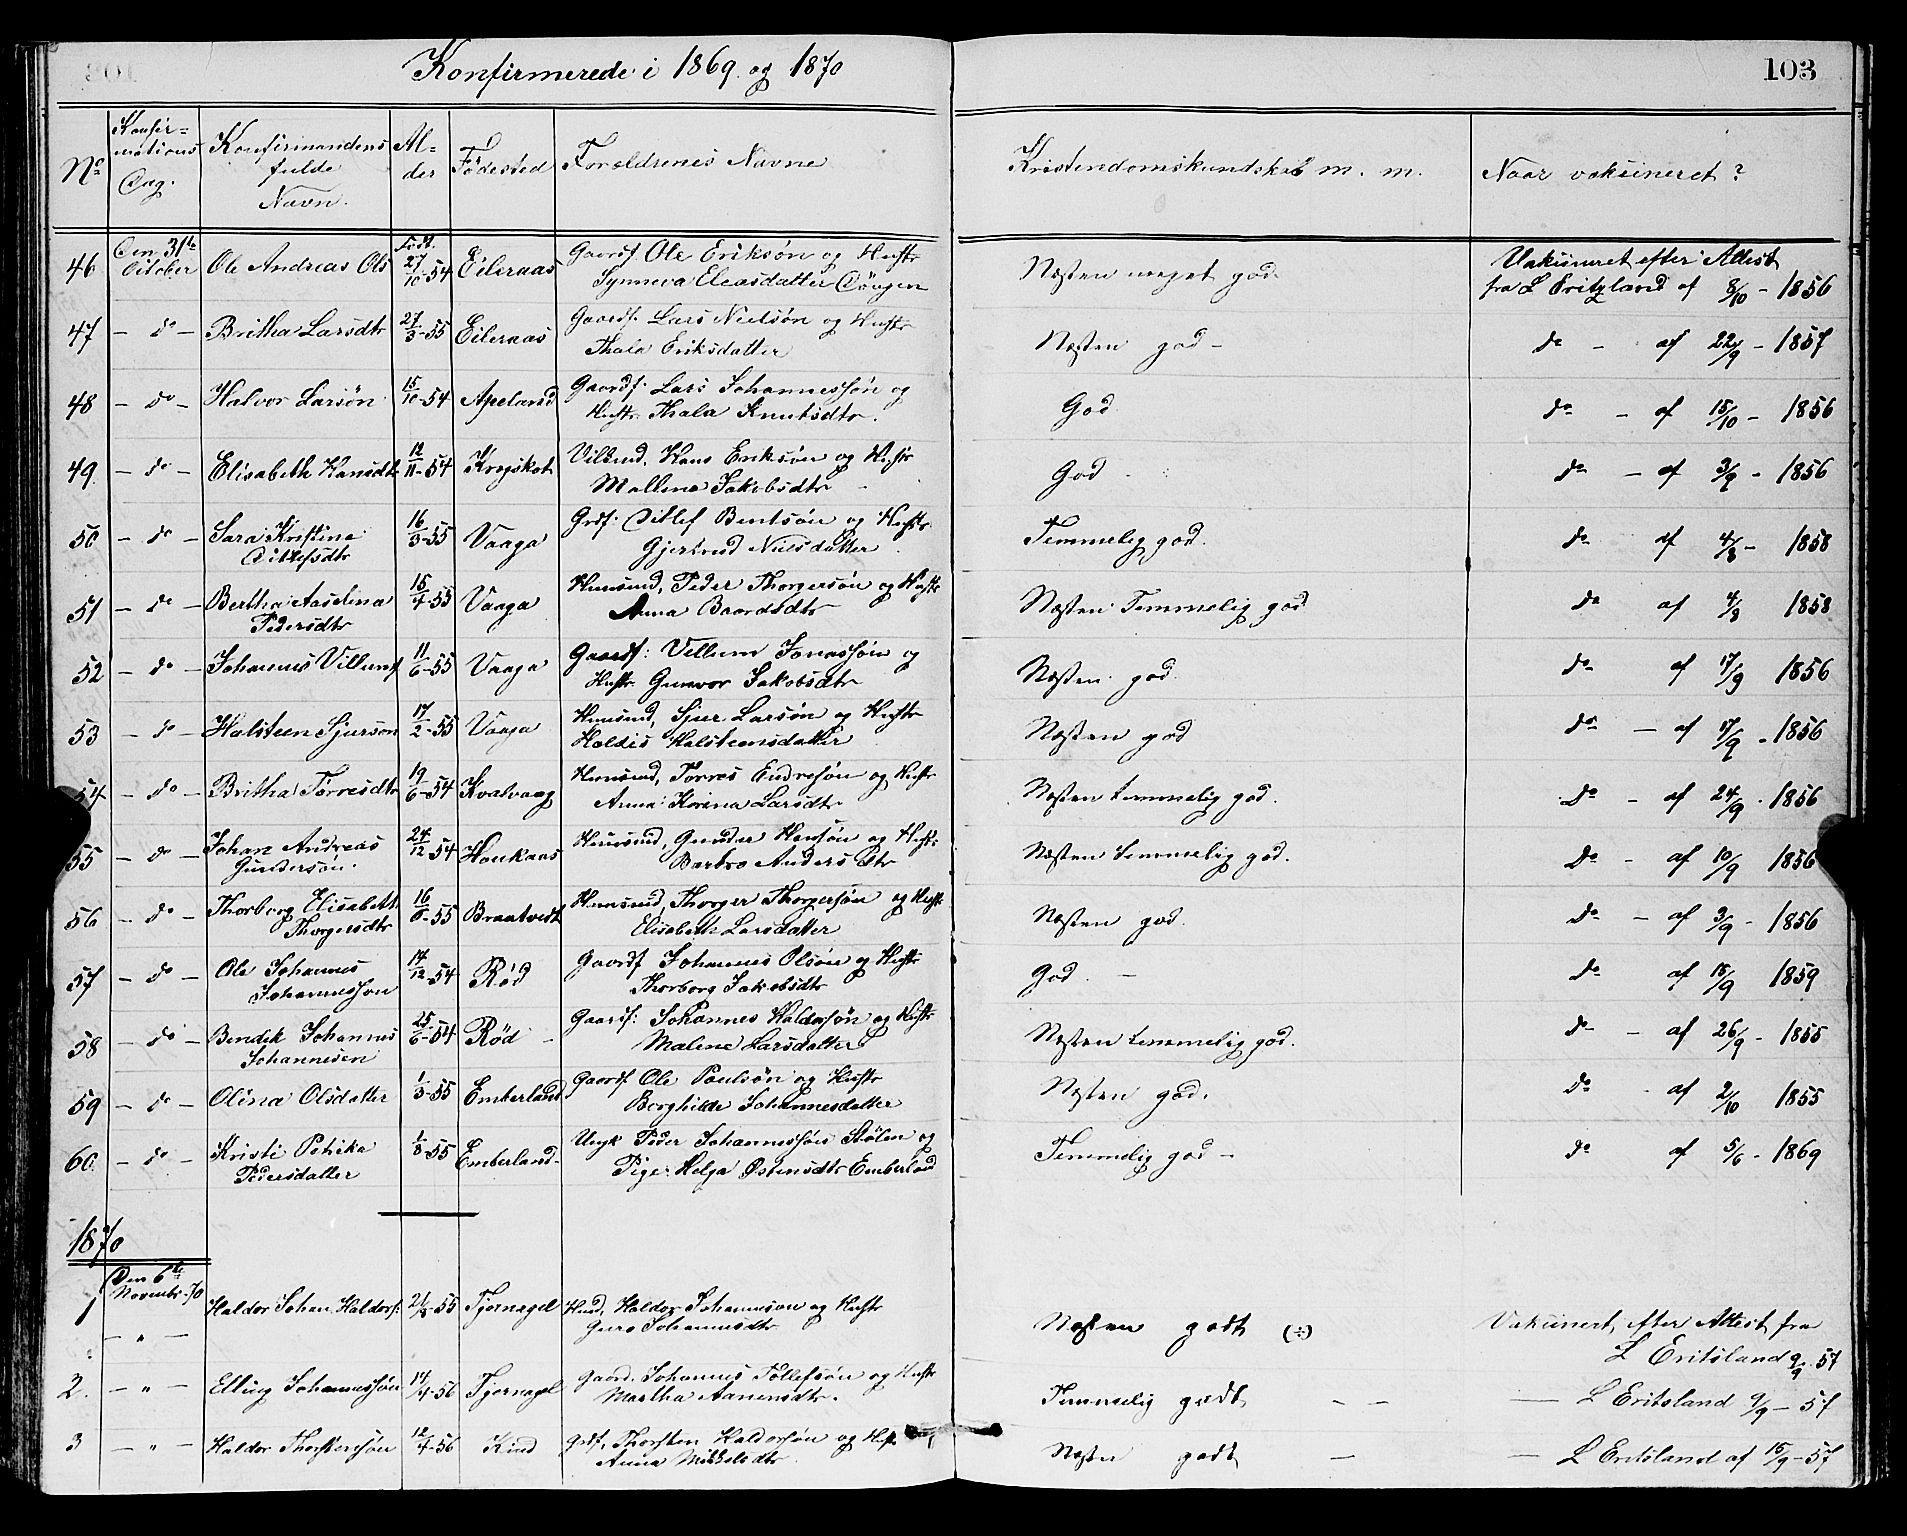 Konfirmerede i 1869 og 1870
103
No
Konfir=
mations
Dag.
Konfirmandens
fulde
Navn.
Al=
der
Fødested
Forældrenes Navne
Kristendomskundskab m. m.
Naar vaksineret?
46 Den 31te October Ole Andreas Ols Født. 27/10-54 Eileraas Gaardf. Ole Eriksøn og Hustr Næsten meget god. Vaksineret efter Attest
Synneva Eleasdatter fra L Eritzland af 8/10 - 1856
47 - do - Britha Larsdtr 27/3-55 Eileraas Gaardf. Lars Nielsøn og Hustr Næsten god - do - af 22/9 - 1857
Thala Eriksdatter
48 - do - Halvor Larsøn 15/10-54 Apeland Gaardf. Lars Johannessøn og God do - af 15/10 - 1856
Hustr Thala Knutsdtr.
49 - do - Elisabeth Hansdtr 12/11-54 Krogskot Hans Eriksøn og Hustr God do - af 3/9 - 1856
Mallene Jakobsdtr
50 - do - Sara Kristine 16/3-55 Vaaga Grdf: Ditlef Bentsøn og Hustr. Temmelig god. do af 4/8 - 1858
Ditlefsdtr Gjertrud Nielsdatter
51 - do - Bertha Aaselina 15/4-55 Vaaga Husmd, Peder Thorgersøn og Hustr Næsten Temmelig god do af 4/8 1858
Pedersdtr Anna Baardsdtr
52 - do - Johannes Villums 11/6-55 Vaaga Gaardf: Villum Jonassøn og Næsten god do af 17/9 1856
Hustr Gunvor Jakobsdtr
53 - do - Halsteen Sjursøn 17/2-55 Vaaga Husmd, Sjur Larsøn og Hustr Næsten god do - af 17/9 - 1856
Haldis Halsteensdatter
54 - do - Britha Torresdtr 19/6-54 Kvalvaag Husmd, Torres Endresøn og Hustr Næsten temmelig god. do - af 24/9 - 1856
Anna Korina Larsdtr
55 - do - Johan Andreas 24/12-54 Haukaas Husmd, Gunder Hansøn og Hustr Næsten temmelig god. do - af 10/9 1856
Gundersøn. Barbro Anders dtr
56 - do - Thorborg Elisabeth 16/6-55 Braatvedt Husmd, Thorger Thorgersøn og Hustr Næsten god. do - af 3/9 - 1856
Thorgersdtr Elisabeth Larsdatter
57 - do - Ole Johannes 14/12-54 Rød Gaardf Johannes Olsøn og Hustr God. - do af 15/9 1859
Johannessøn Thorborg Jakobsdtr
58 - do - Bendik Johannes 25/6-54 Rød - Gaardf: Johannes Haldorsøn og Hustr Næsten temmelig god. do - af 26/9 - 1855
Johannesen Malene Larsdatter
59 - do - Olina Olsdatter 1/3-55 Emberland Gaardf Ole Paulsøn og Hustr Næsten god. do - af 2/10 1855
Borghilde Johannesdatter
60 - do - Kristi Petrika 1/8-55 Emberland - Ungk Peder Johannessøn Stølen og Temmelig god - do af 5/6 - 1869
Pedersdatter Pige: Helga Østensdtr Emberland
1870
1 Den 6te Novembr. 70 Haldor Johan Haldors: 21/8-55 Tjernagel Husmd, Haldor Johannesøn og Hustr Næsten godt (÷) Vaksinert, efter Attest fra
- " - Guro Johannesdtr L Eritsland 9/9 57
2. - " - Elling Johannessøn 14/4-56 Tjernagel Gaard. Johannes Tollefsøn og Hustr Temmelig godt - - - L Eritsland 9/9 - 57
Martha Aanensdtr.
3 - " - Haldor Thorstensøn 12/4-56 Kind Grdf, Thorsten Haldorsøn og Hustr Næsten godt - - L Eritsland af 15/9 - 57
Anna Mikkelsdtr